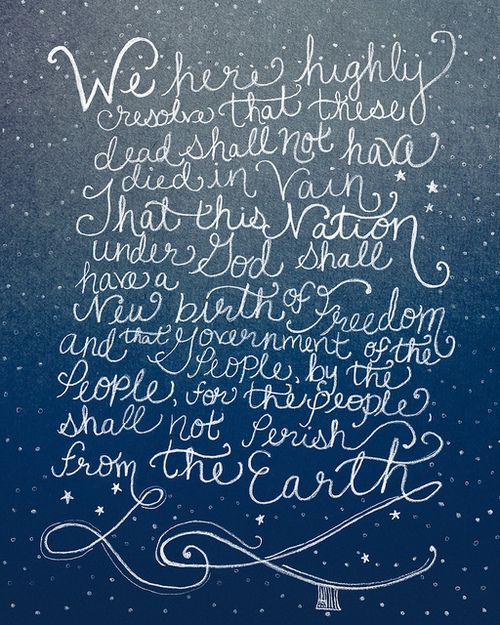 We here highly
resolve that these
dead shall not have
died in Vain
That this Nation
under God shall
have a
New birth of Freedom
and that Government of the
People, by the
People, for the people,
shall not Perish
from the Earth